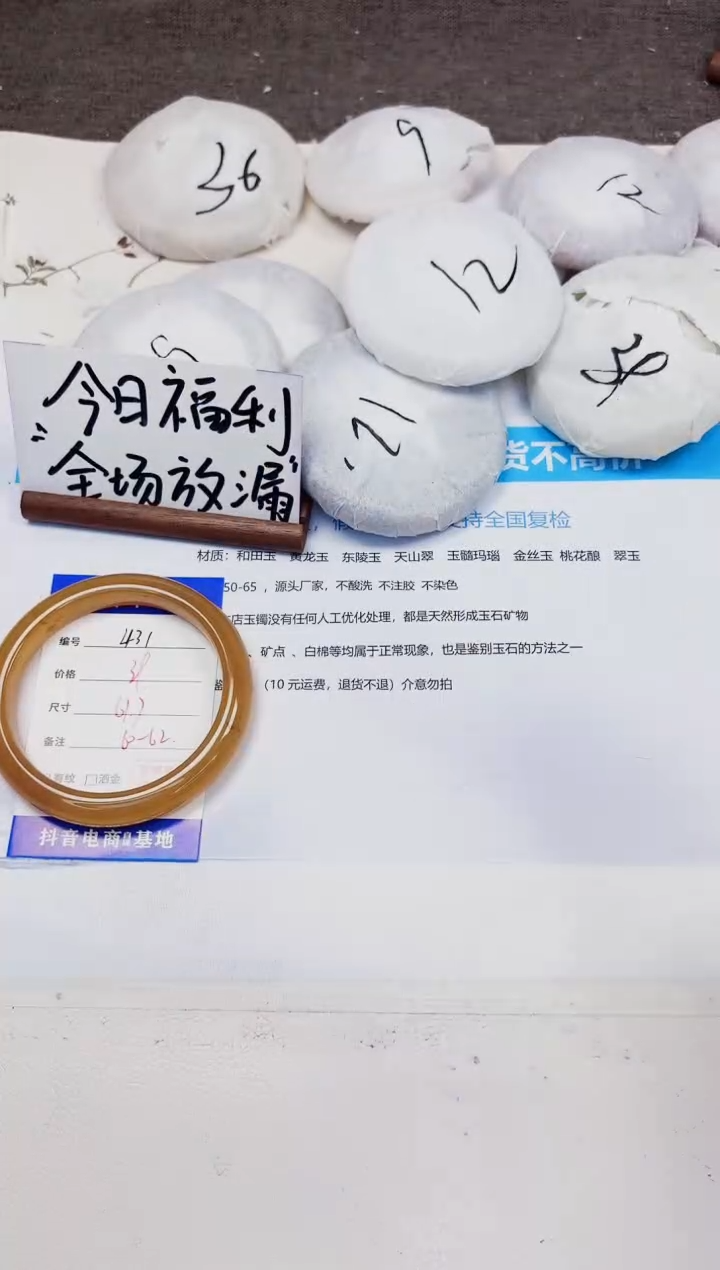 36
9
12
12
今日福利
"全场放漏"
12
货不高价
持全国复检
材质：和田玉 黄龙玉 东陵玉 天山翠 玉髓玛瑙 金丝玉 桃花酿 翠玉
50-65 ，源头厂家，不酸洗 不注胶 不染色
店玉镯没有任何人工优化处理，都是天然形成玉石矿物
、矿点 、白棉等均属于正常现象，也是鉴别玉石的方法之一
（10 元运费，退货不退）介意勿拍
编号 431
价格
尺寸
备注 60-62.
洒金
抖音电商 基地